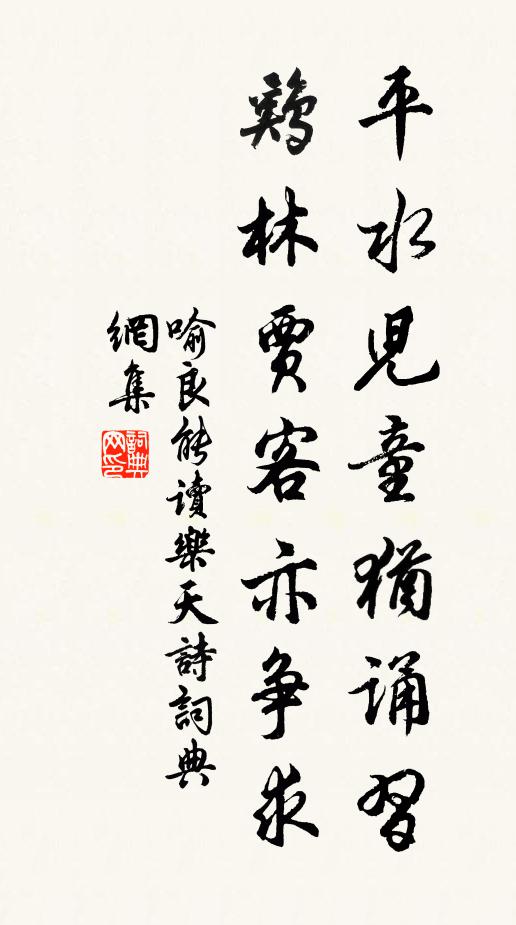 平水兒童猶誦習
鷄林賈客亦争求
喻良能讀樂天詩詞典
網集
詞典
网印